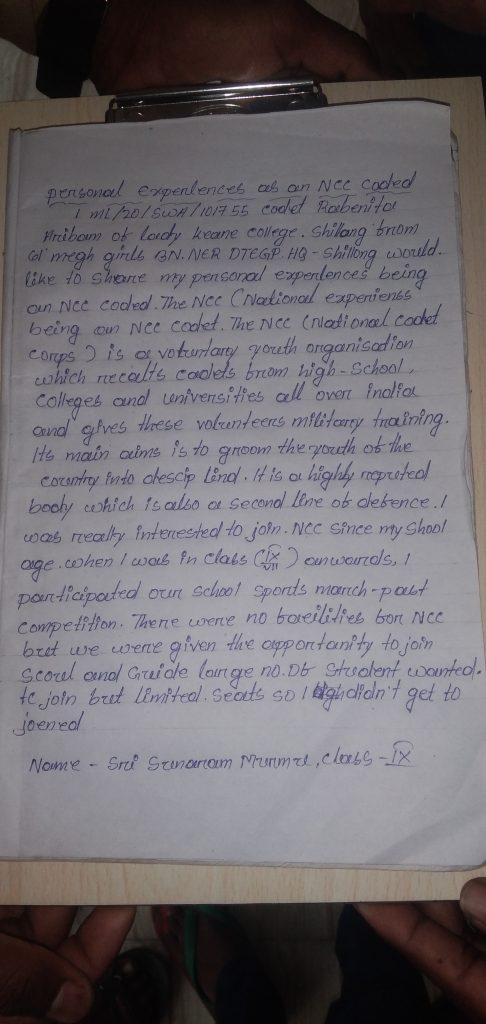 personal experiences as an NCC Caded
I ML/20/SWA/101755 cadet Rabenita
Hribam of lady keane college. Shillang from
61 megh girls BN. NER DTEGP. HQ - Shillong would.
like to Share my personal experiences being
an NCC coded. The NCC (National experienss
being an NCC cadet. The NCC (National cadet
corps) is a voluntary youth organisation
which recalts cadets from high-School,
Colleges and universities all over india
and gives these volunteers military training.
Its main aims is to groom the youth of the
country into descip lind. It is a highly repreted
body which is also a second line of defence. I
was really interested to join. NCC since my Shool
age. when I was in class (IX VII) onwards, I
participated our school sports march-past
Competition. There were no faeilities for NCC
but we were given the opportanity to join
Scoul and Guide large no. Of Student wanted.
to join but limited. Seats so I didn't get to
joened
Name - Sri Sunaram Murmu, class - IX